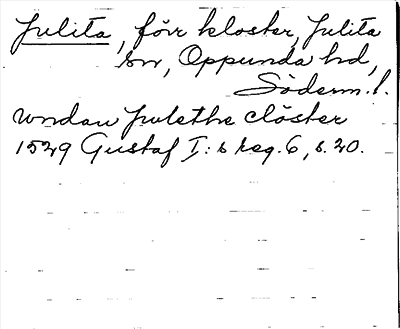 Julita, förr kloster, Julita
sn, Oppunda hd,
Söderm.l.
vndan Julethe clöster
1529 Gustaf I:s reg. 6, s. 20.